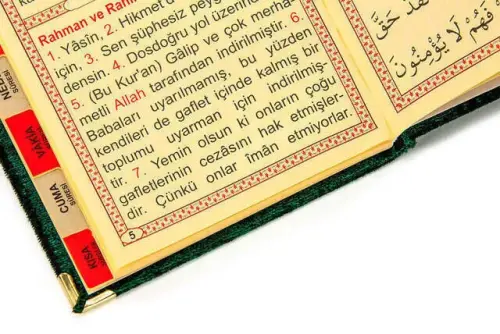 Rahman ve Rahî
1. Yâsîn, 2. Hikmet d
için, 3. Sen şüphesiz peyg
densin. 4. Dosdoğru yol üzerin
5. (Bu Kur'an) Gâlip ve çok merha-
metli Allah tarafından indirilmiştir. 6.
Babaları uyarılmamış, bu yüzden
kendileri de gaflet içinde kalmış bir
toplumu uyarman için indirilmiş-
tir. 7. Yemin olsun ki onların çoğu
gafletlerinin cezasını hak etmişler-
dir. Çünkü onlar îmân etmiyorlar.
5
NEBE
SURESİ
VAKIA
CUMA
SURESİ
KISA
حَقَّ
فَهُمْ لَا يُؤْمِنُونَ